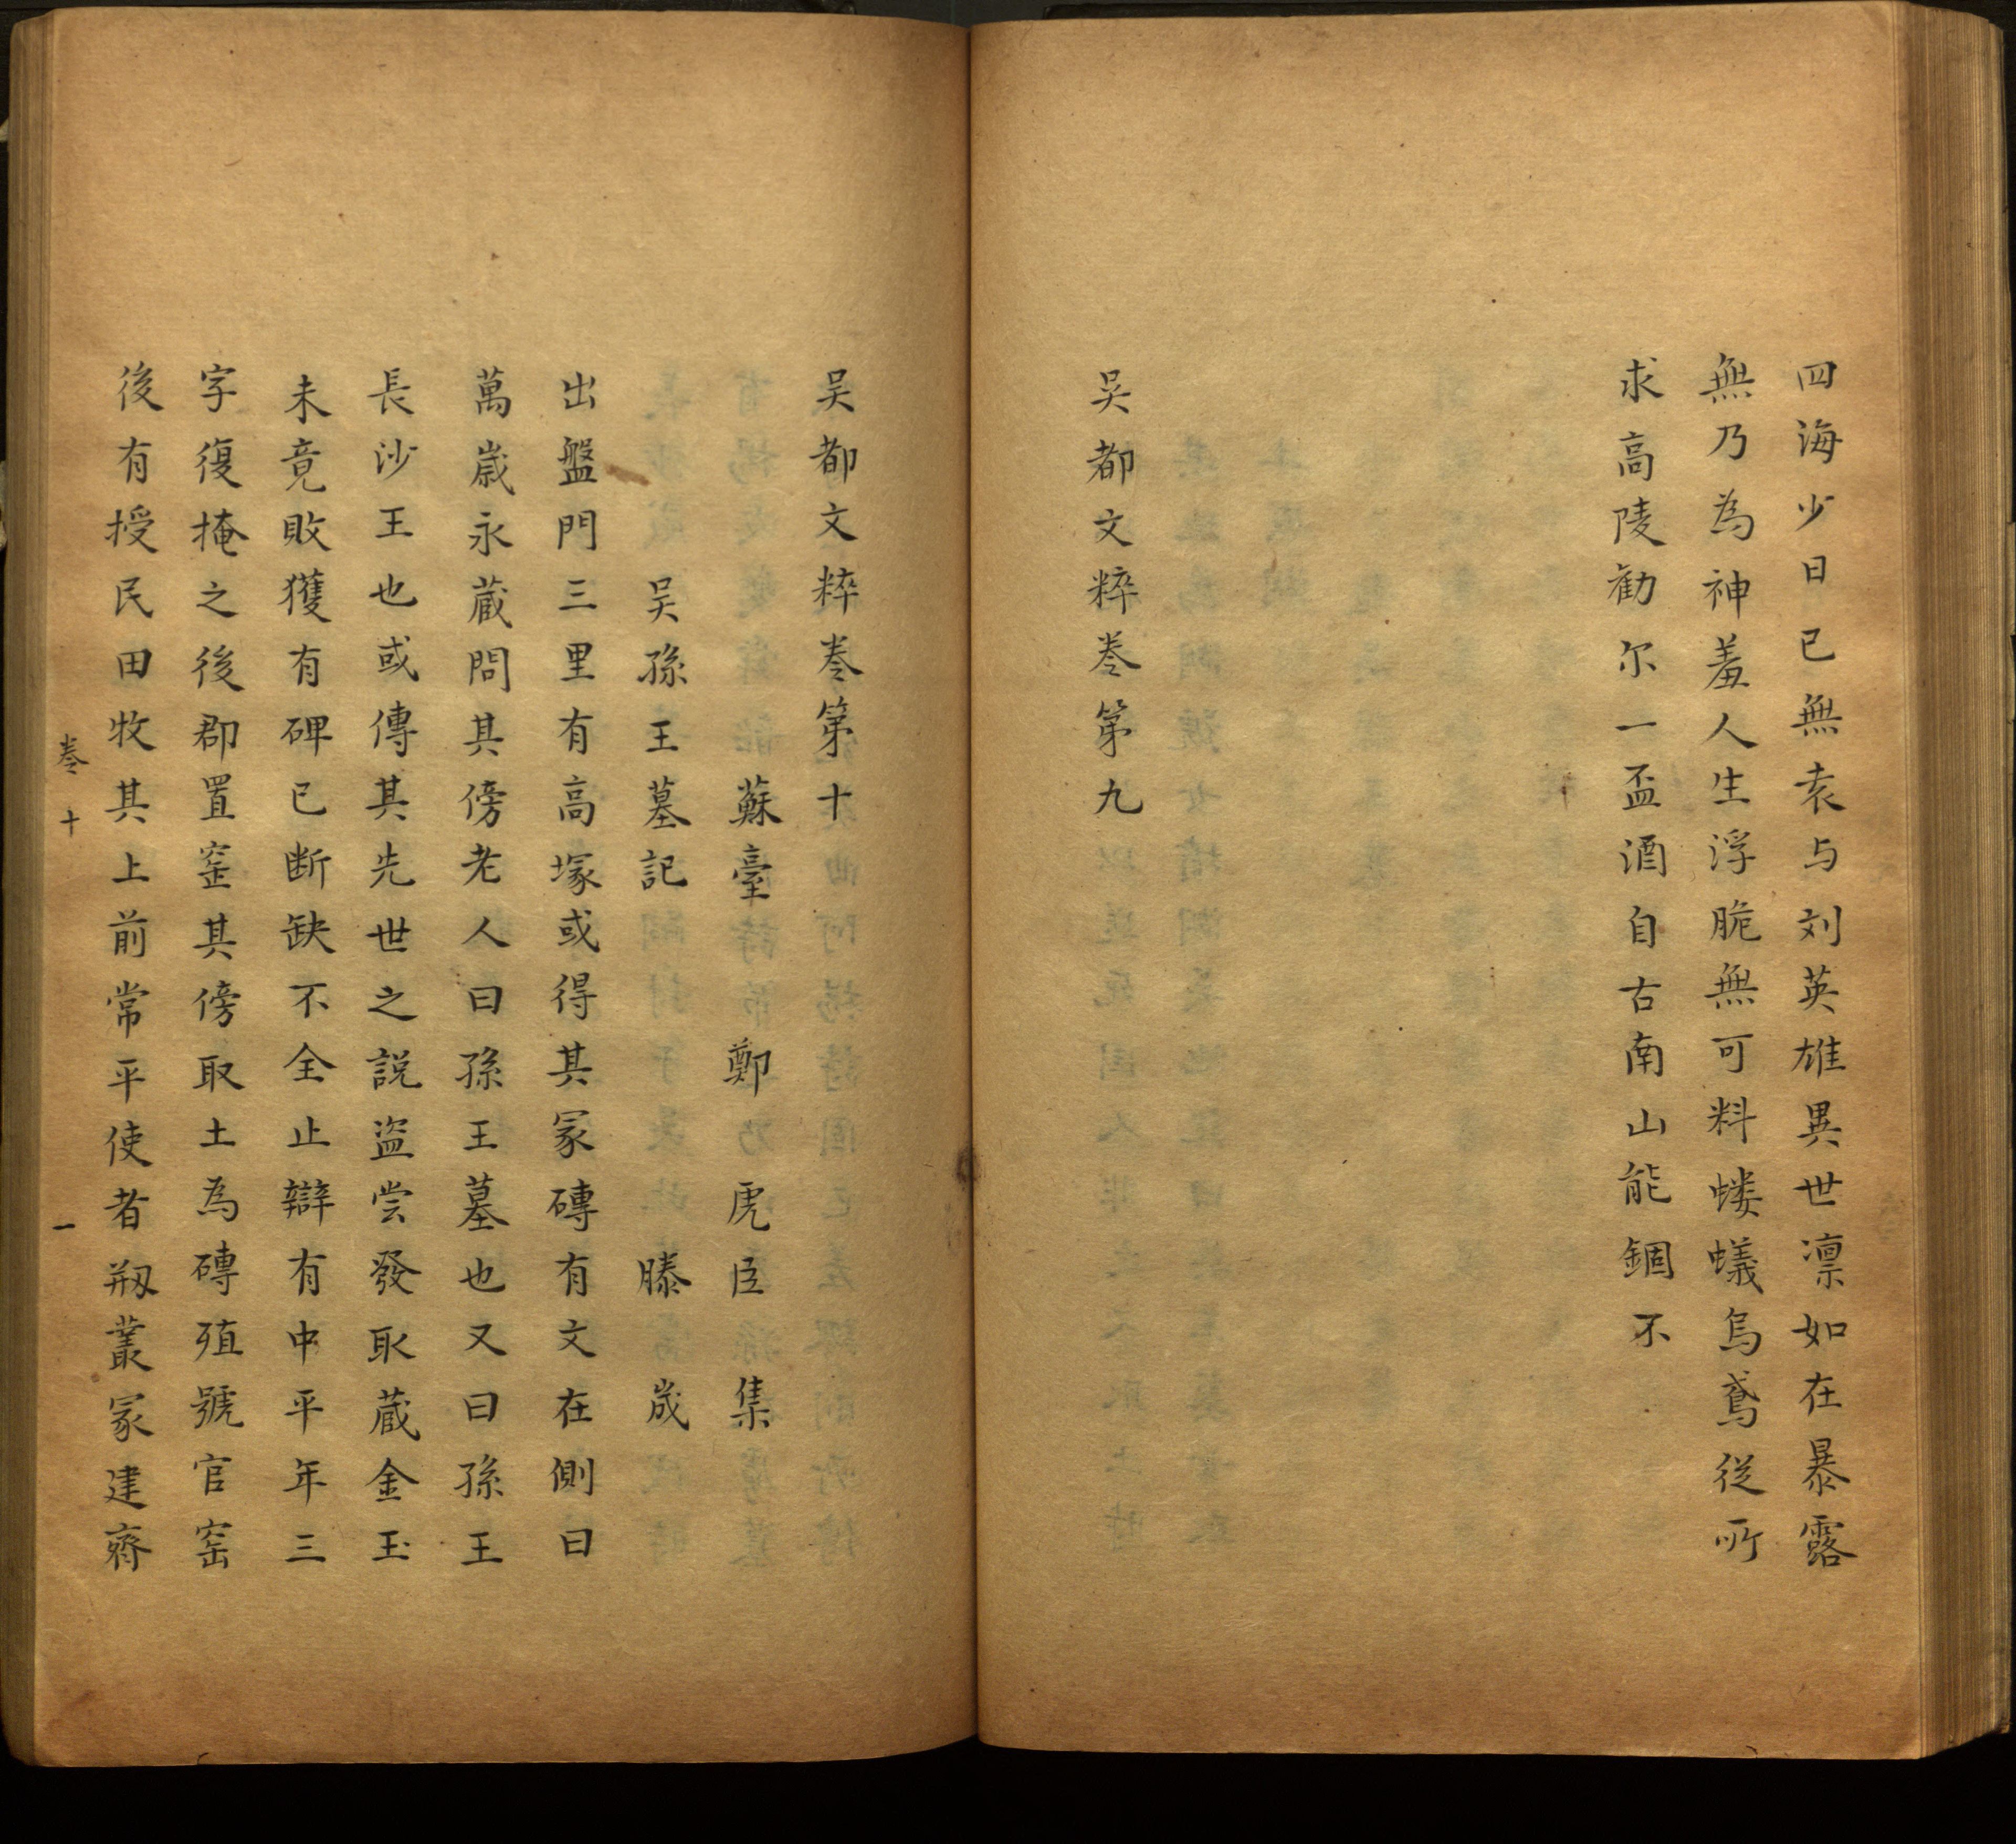 四海少日已無袁与刘英雄異世凛如在暴露
無乃為神羞人生浮脆無可料蝼蟻烏鳶從所
求高陵勧尔一盃酒自古南山能錮不
吴都文粹卷第九
吴都文粹卷第十
蘇臺 鄭 虎臣 集
吴孫王墓記 滕宬
出盤門三里有高塚或得其冢磚有文在側曰
萬歳永蔵問其傍老人曰孫王墓也又曰孫王
長沙王也或傳其先世之説盗尝發取蔵金玉
未竟敗獲有碑已断缺不全止辯有中平年三
字復掩之後郡置窑其傍取土為磚殖號官窑
後有授民田牧其上前常平使者剏叢冢建齊
卷十 一